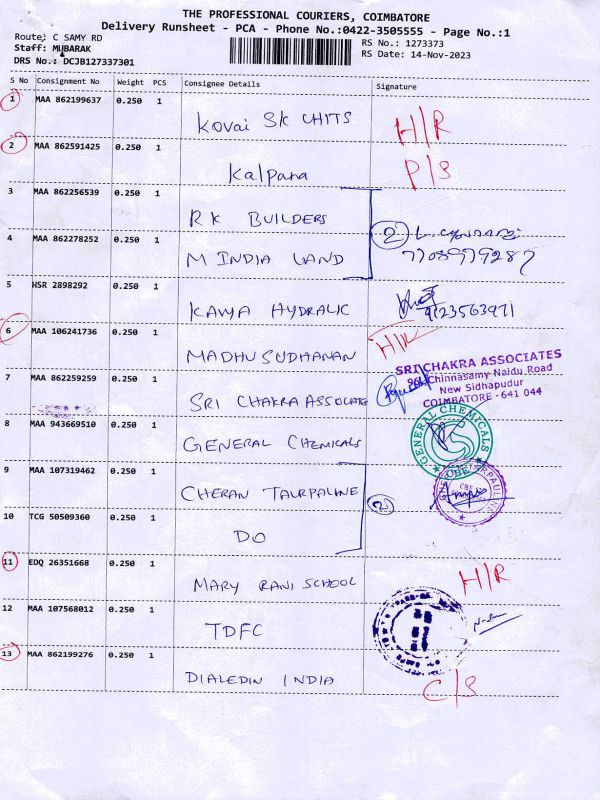 THE PROFESSIONAL COURIERS, COIMBATORE
Delivery Runsheet - PCA - Phone No.:0422-3505555 - Page No.:1
Route: C SAMY RD
RS No.: 1273373
Staff: MUBARAK
RS Date: 14-Nov-2023
DRS No.: DCJB127337301
S No Consignment No Weight PCS Consignee Details Signature
1 MAA 862199637 0.250 1 Kovai SK CHITS H/R
2 MAA 862591425 0.250 1 Kalpana P/S
3 MAA 862256539 0.250 1 RK BUILDERS
4 MAA 862278252 0.250 1 M INDIA LAND
2
7708979287
5 HSR 2898292 0.250 1 KAVYA HYDRALIC 9123563971
6 MAA 106241736 0.250 1 MADHUSUDHANAN H/R
7 MAA 862259259 0.250 1 SRI CHAKRA ASSOCIATES
SRI CHAKRA ASSOCIATES
Chinnasamy Naidu Road
New Sidhapudur
COIMBATORE - 641 044
8 MAA 943669510 0.250 1 GENERAL CHEMICALS
GENERAL CHEMICALS
CBE
9 MAA 107319462 0.250 1 CHERAN TAURPALINE
CBE
2
10 TCG 50509360 0.250 1 DO
11 EDQ 26351668 0.250 1 MARY RANI SCHOOL H/R
12 MAA 107568012 0.250 1 TDFC
13 MAA 862199276 0.250 1 DIALEDIN INDIA C/S